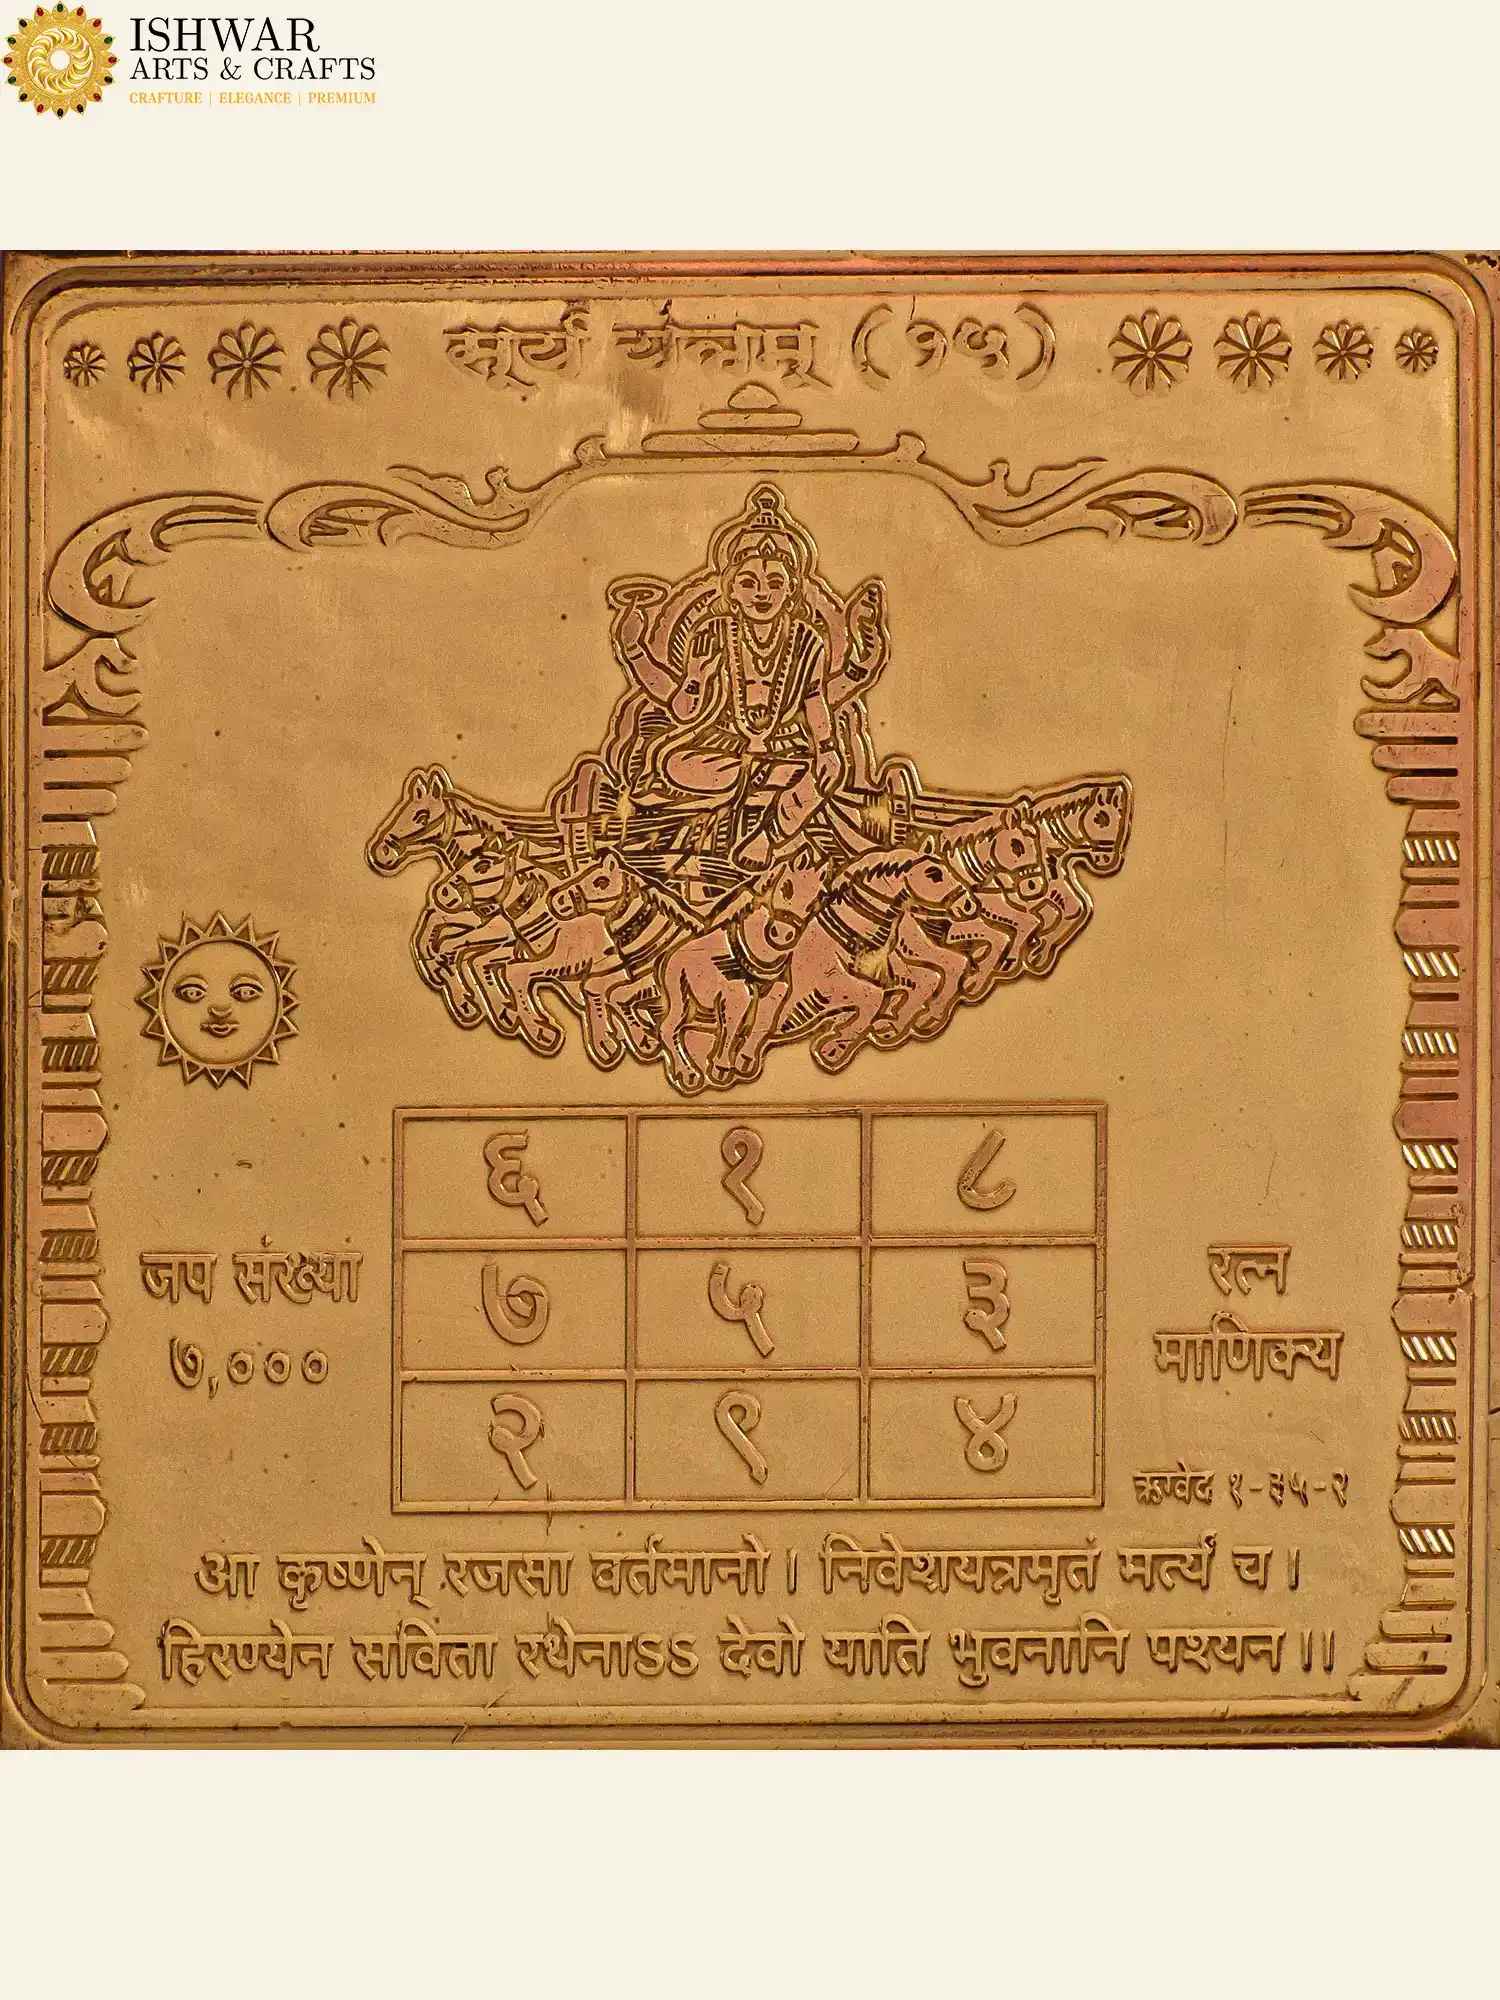 ISHWAR
ARTS & CRAFTS
CRAFTURE | ELEGANCE | PREMIUM
सूर्य यंत्रम् (१५)
६ १ ८
७ ५ ३
२ ९ ४
जप संख्या
७,०००
रत्न
माणिक्य
ऋग्वेद १-३५-२
आ कृष्णेन् रजसा वर्तमानो । निवेशयन्नमृतं मर्त्यं च ।
हिरण्येन सविता रथेनाSS देवो याति भुवनानि पश्यन ।।